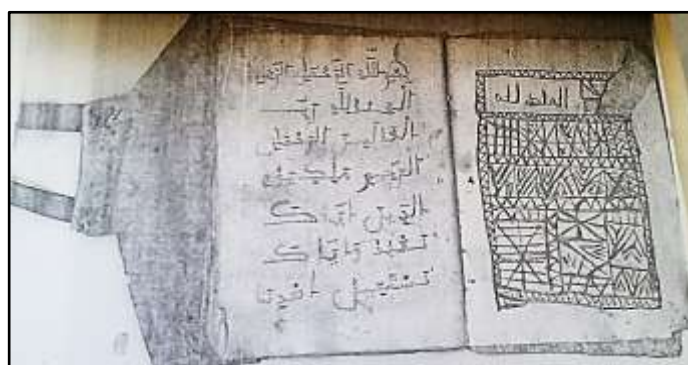 بسم الله الرحمن الرحيم
الحمد لله رب
العلمين الرحمن
الرحيم ملك يوم
الدين إياك
نعبد وإياك
نستعين اهدنا